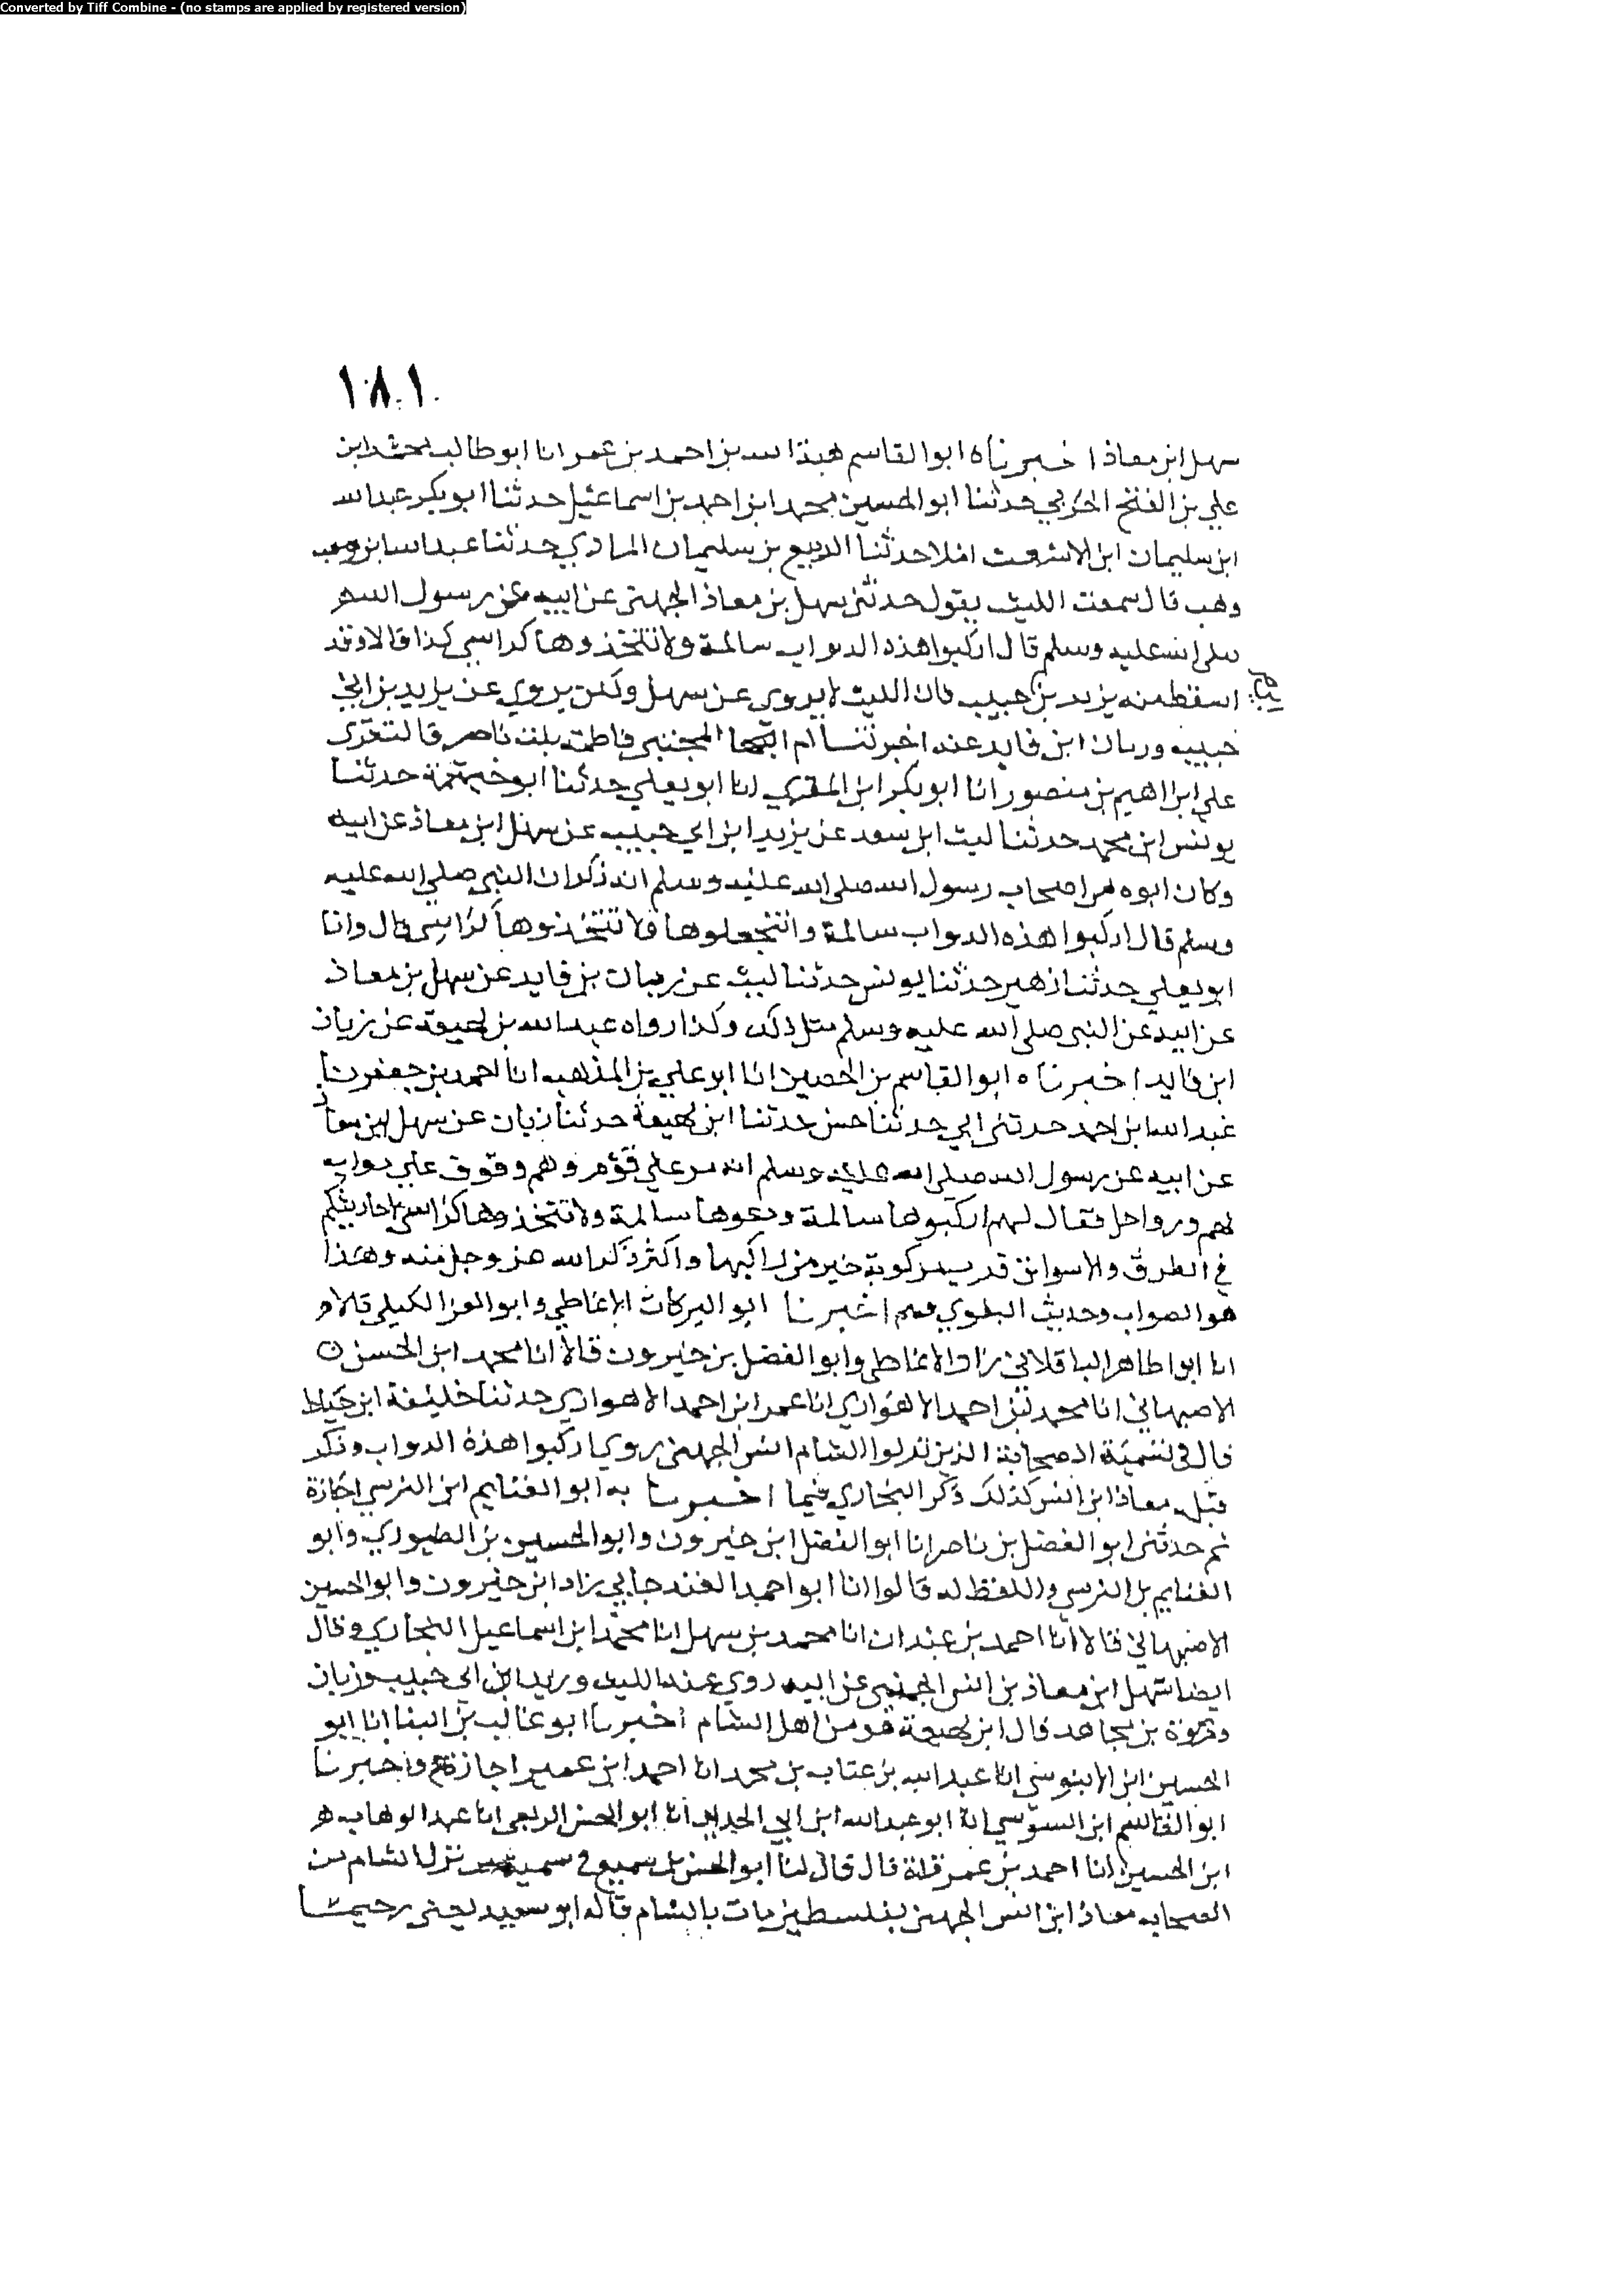 Converted by Tiff Combine - (no stamps are applied by registered version)
١٨١
سهل ابن معاذ اخبرناه ابوالقاسم هبة الله بن احمد بن عمر انا ابوطالب محمد ابن
علي بن الفتح الحربي حدثنا ابوالحسين محمد ابن احمد بن اسماعيل حدثنا ابوبكر عبدالله
ابن سليمان ابن الاشعث املا حدثنا الربيع بن سليمان المرادي حدثنا عبدالله ابن وهب
وهب قال سمعت الليث يقول حدثني سهل بن معاذ الجهني عن ابيه عن رسول الله
صلى الله عليه وسلم قال اركبوا هذه الدواب سالمة ولا تتخذوها كراسي كذا قالا وقد
اسقط منه يزيد بن حبيب فان الليث لا يروي عن سهل ولكن يروي عن يزيد بن ابي
حبيب وزبان ابن فايد عنه اخبرتنا ام المجتبى فاطمة بنت ناصر قالت قرى
على ابراهيم بن منصور انا ابوبكر ابن المقري انا ابويعلي حدثنا ابوخيثمة حدثنا
يونس ابن محمد حدثنا ليث ابن سعد عن يزيد ابن ابي حبيب عن سهل ابن معاذ عن ابيه
وكان ابوه من اصحاب رسول الله صلى الله عليه وسلم انه ذكر ان النبي صلى الله عليه
وسلم قال اركبوا هذه الدواب سالمة ولا تتخذوها كراسي قال وانا
ابويعلي حدثنا زهير حدثنا يونس حدثنا ليث عن زبان بن فايد عن سهل بن معاذ
عن ابيه عن النبي صلى الله عليه وسلم مثل ذلك وكذا رواه عبدالله بن لهيعة عن زبان
ابن فايد اخبرناه ابوالقاسم بن الحصين انا ابوعلي بن المذهب انا احمد بن جعفر نا
عبدالله ابن احمد حدثني ابي حدثنا حسن حدثنا ابن لهيعة حدثنا زبان عن سهل ابن معاذ
عن ابيه عن رسول الله صلى الله عليه وسلم انه مر على قوم وهم وقوف على دواب
لهم ورواحل فقال لهم اركبوها سالمة ودعوها سالمة ولا تتخذوها كراسي لاحاديثكم
في الطرق والاسواق فرب مركوبة خير من راكبها واكثر ذكرا لله عز وجل منه وهذا
هو الصواب وحديث البغوي وهم اخبرنا ابوالبركات الانماطي وابوالعز الكيلي قالا
انا ابوا طاهر الباقلاني زاد الانماطي وابوالفضل بن خيرون قالا انا محمد ابن الحسن
الاصبهاني انا محمد بن احمد الاهوازي انا عمر ابن احمد الاهوازي حدثنا خليفة ابن خياط
قال في تسمية الصحابة الذين نزلوا الشام انس الجهني روي اركبوا هذه الدواب وذكر
قبل معاذ ابن انس كذلك ذكر البخاري فيما اخبرنا به ابوالغنايم ابن النرسي اجازة
ثم حدثني ابوالفضل بن ناصر انا ابوالفضل ابن خيرون وابوالحسين بن الطيوري وابو
الغنايم بن النرسي واللفظ له قالوا انا ابواحمد الغندجاني زاد ابن خيرون وابوالحسين
الاصبهاني قالا انا احمد بن عبدان انا محمد بن سهل انا محمد ابن اسماعيل البخاري وقال
ايضا سهل ابن معاذ بن انس الجهني عن ابيه روي عنه الليث ويزيد ابن ابي حبيب وزبان
وفروة بن مجاهد قال ابن لهيعة هو من اهل الشام اخبرنا ابوغالب بن البنا انا ابو
الحسين ابن الابنوسي انا عبدالله بن عتاب بن محمد انا احمد ابن عمير اجازة ح واخبرنا
ابوالقاسم ابن السوسي انا ابوعبدالله ابن ابي الحديد انا ابوالحسن الربعي انا عبدالوهاب
ابن الحسين انا احمد بن عمر قراة قال قال لنا ابوالحسن بن سميع في نزل الشام من
الصحابه معاذ ابن انس الجهني بفلسطين مات بالشام قاله ابوسعيد يعني دحيما